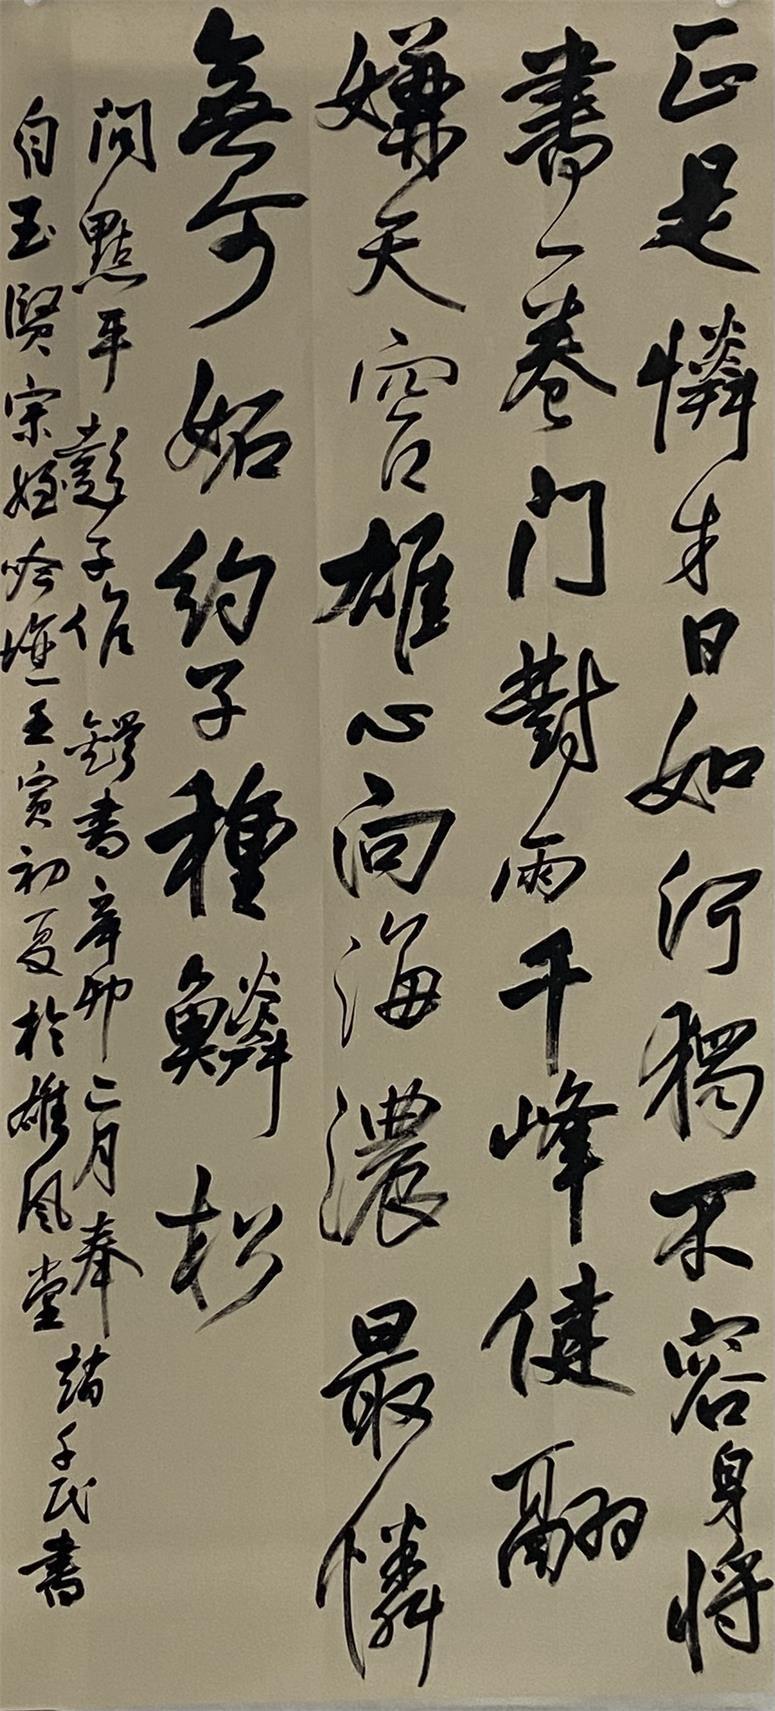 正是憐才日如何獨不容身將
書一卷門對兩千峰健翮
嫌天窄雄心向海濃最憐
無可妬約子種鱗松
問點平彭子作 書辛卯二月奉
自玉賢宗姪吟壇壬寅初夏於雄風堂 千民書